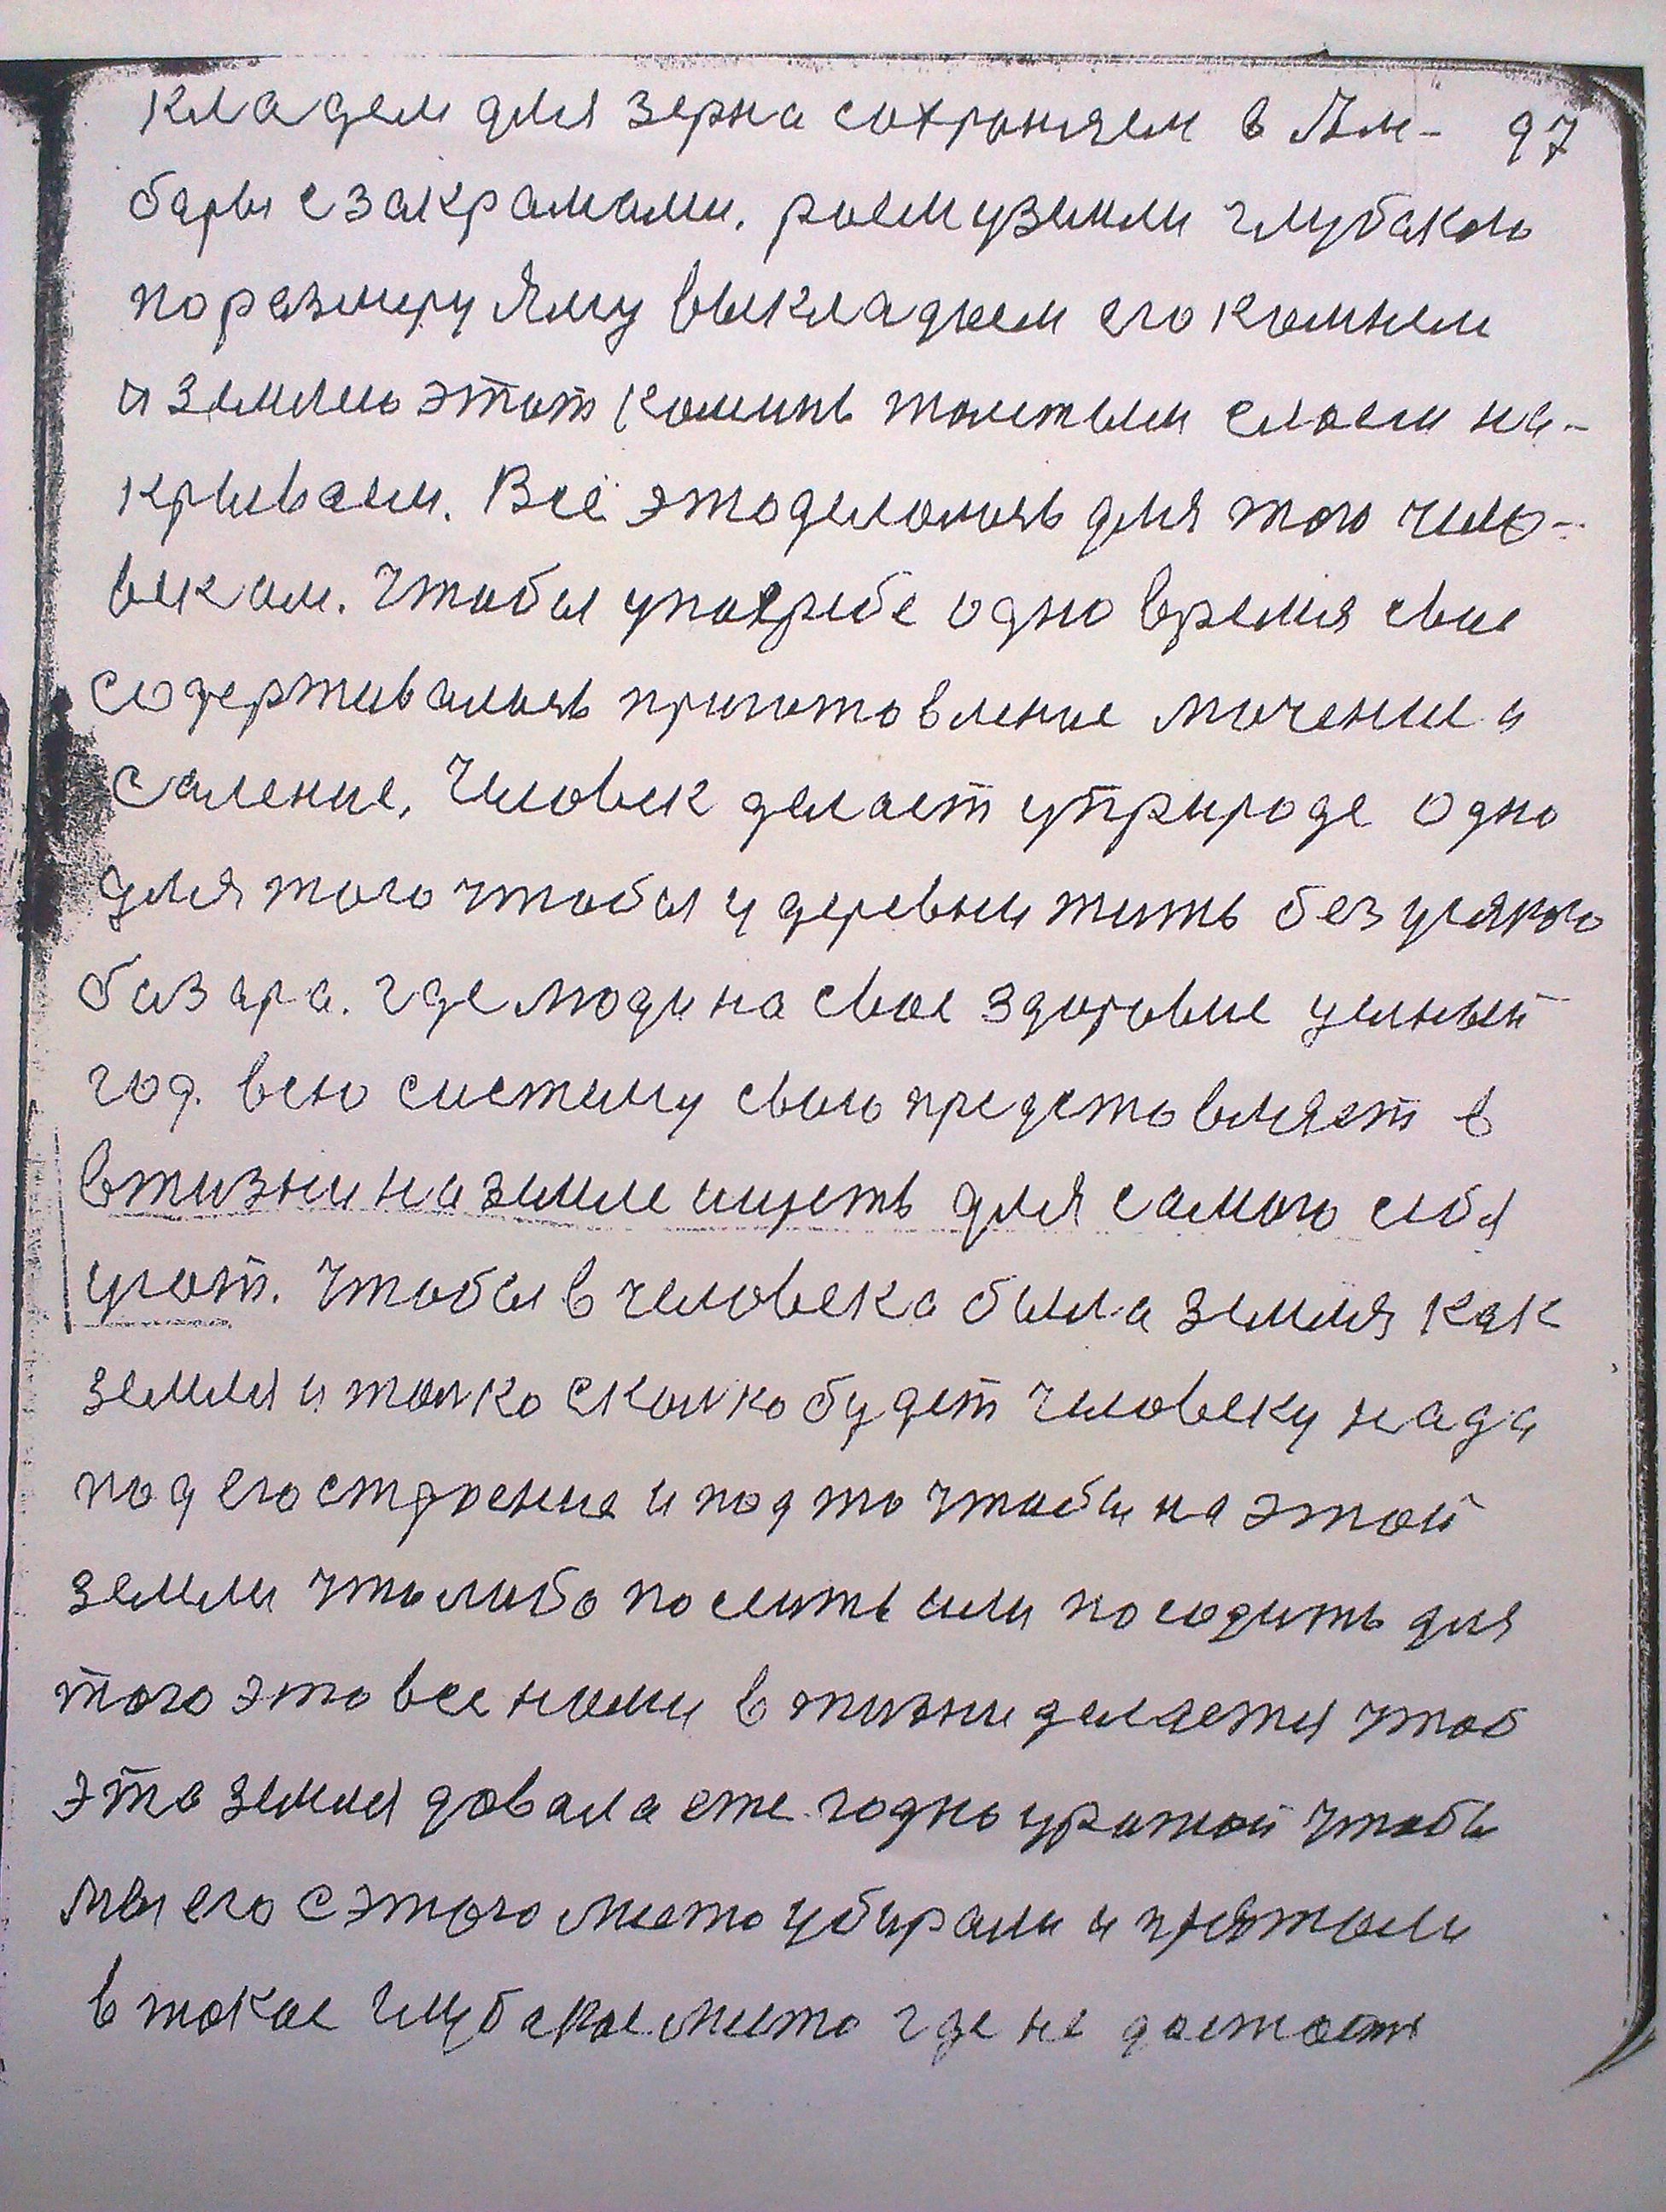 кладем для зерна сохроняем в Ам- 97
бары с закрамами. роем узимли глубакою
по размеру яму выкладоем его комнем
и землею этот коминь толстым слоем на-
крываем. Всё это делолось для того чило-
веком. Чтобы упогребе одно время свие
содерживалось приготовление мочение и
саление, Человек делает уприроде одно
для того чтобы у деревни жить без усякого
базара. где люди на свое здоровие целный
год. всю систему свою предстовляет в
в жизни на земле ищеть для самого себя
угот. Чтобы в человека была земля как
земля и толко сколко будет человеку нада
под его строение и под то чтобы на этой
земли что либо посеить или посодить для
того это все нами в жизни делается чтоб
эта земля довала еже годно урожой чтобы
мы его с этого место убирали и прятоли
в такое глубакое место где не достоеть